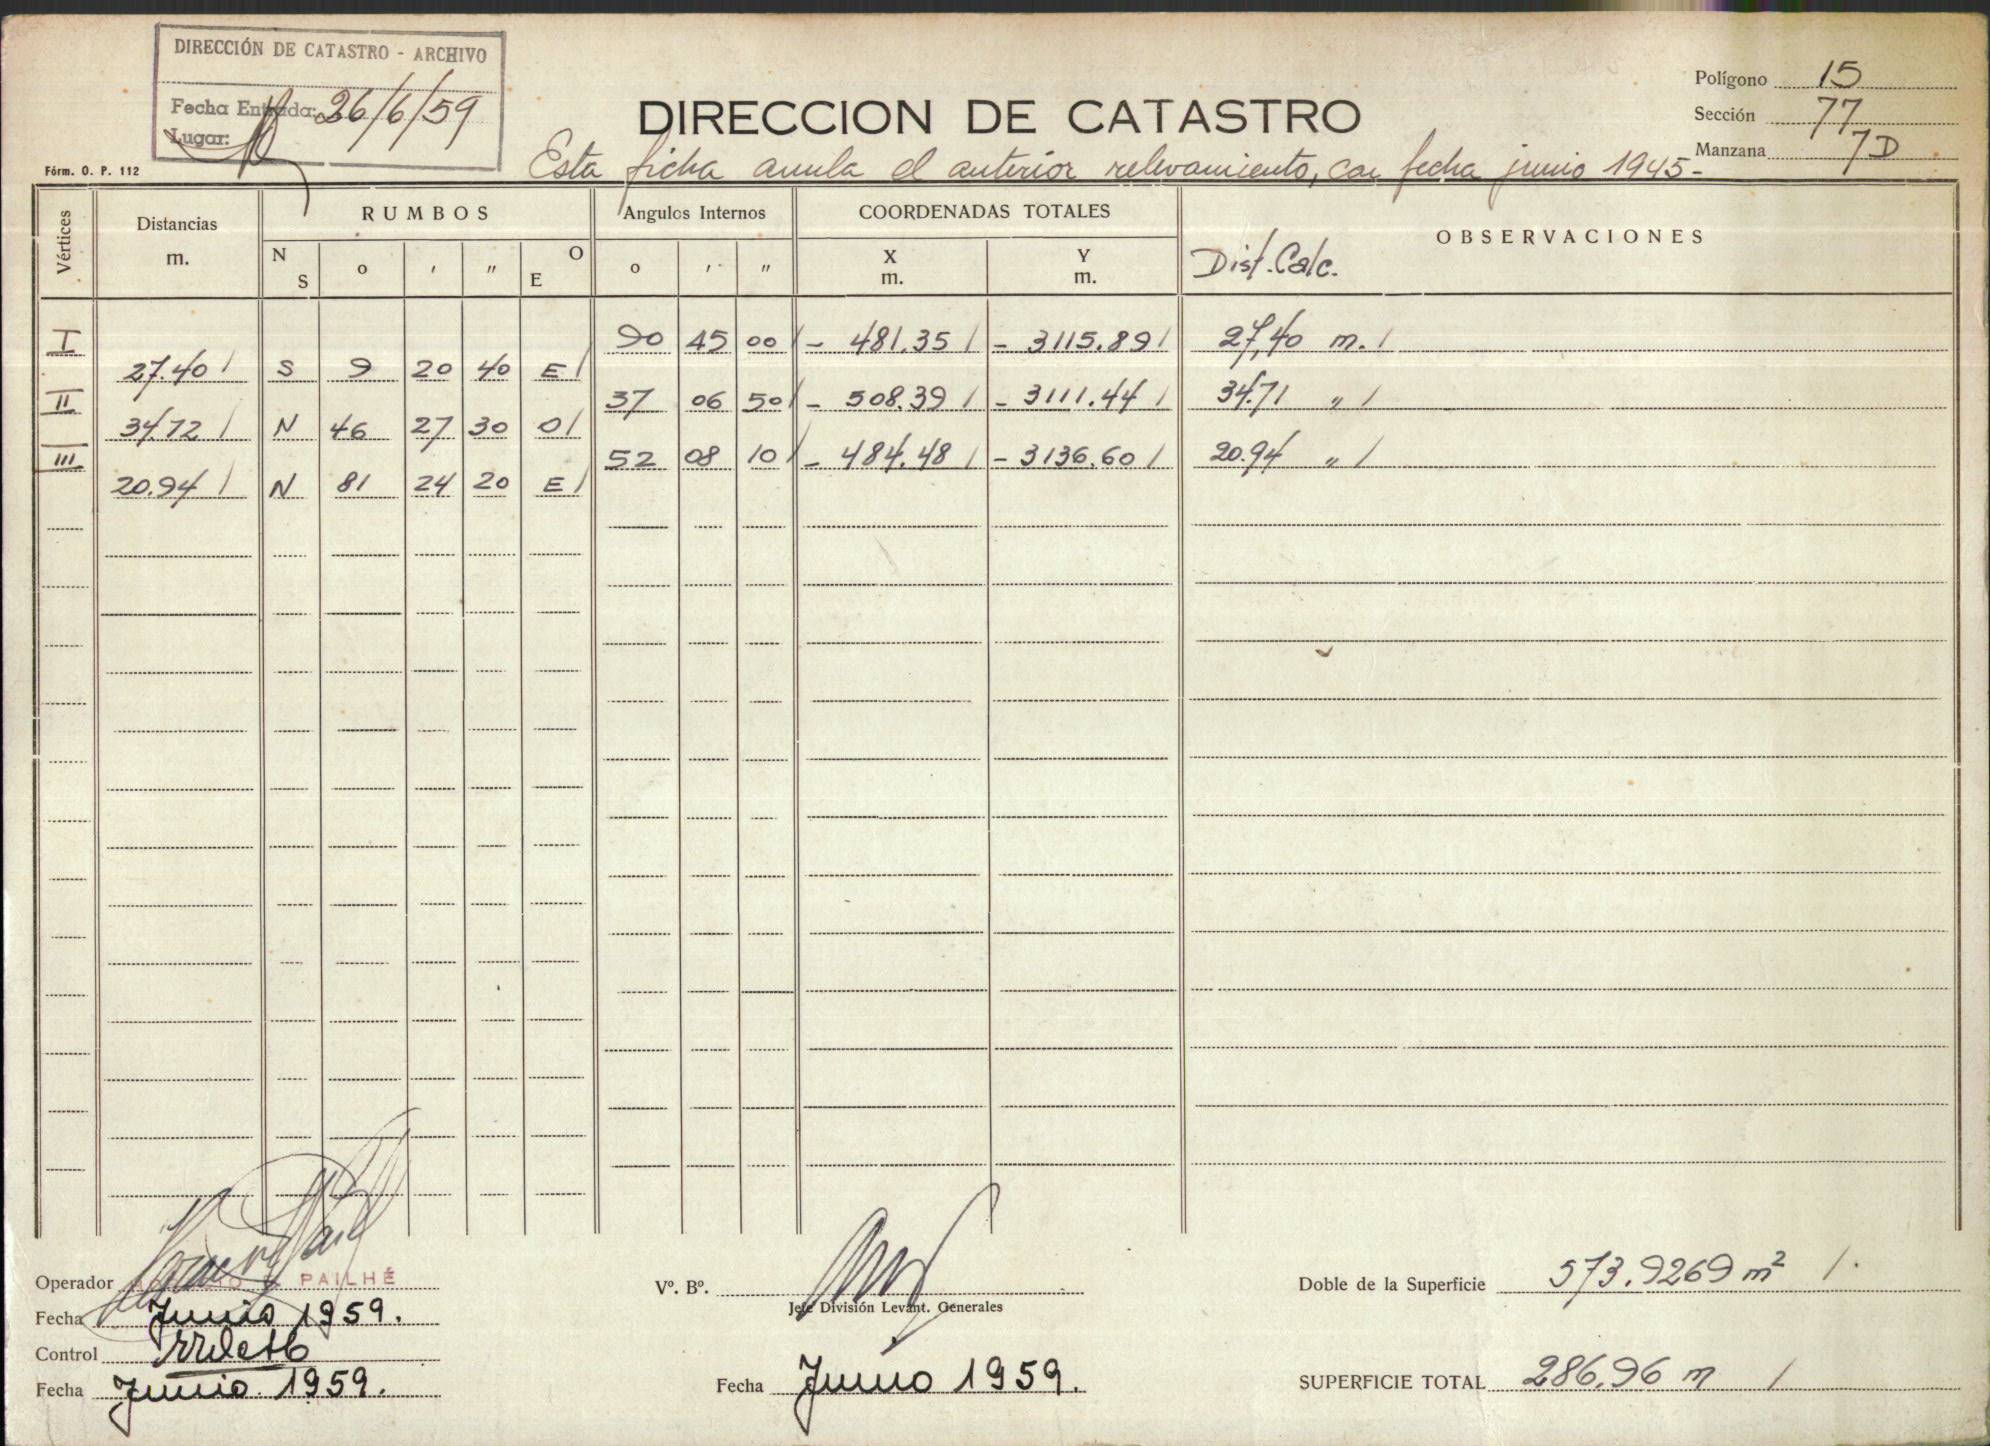 DIRECCIÓN DE CATASTRO - ARCHIVO
Fecha Entrada: 26/6/59
Lugar:
Fórm. O. P. 112
DIRECCION DE CATASTRO
Polígono 15
Sección 77
Manzana 7D
Esta ficha anula el anterior relevamiento, con fecha junio 1945-
Vértices Distancias m. RUMBOS Angulos Internos COORDENADAS TOTALES OBSERVACIONES
N S o ' " O E o ' " X m. Y m. Dist. Calc.
I 90 45 00 / - 481.35 / - 3115.89 / 27,40 m. /
27.40 / S 9 20 40 E /
II 37 06 50 / - 508.39 / - 3111.44 / 34.71 " /
34.72 / N 46 27 30 O /
III 52 08 10 / - 484.48 / - 3136.60 / 20.94 " /
20.94 / N 81 24 20 E /
Operador PAILHÉ
Fecha Junio 1959.
Control
Fecha Junio 1959.
Vº. Bº.
Jefe División Levant. Generales
Fecha Junio 1959.
Doble de la Superficie 573.9269 m² /.
SUPERFICIE TOTAL 286.96 m /